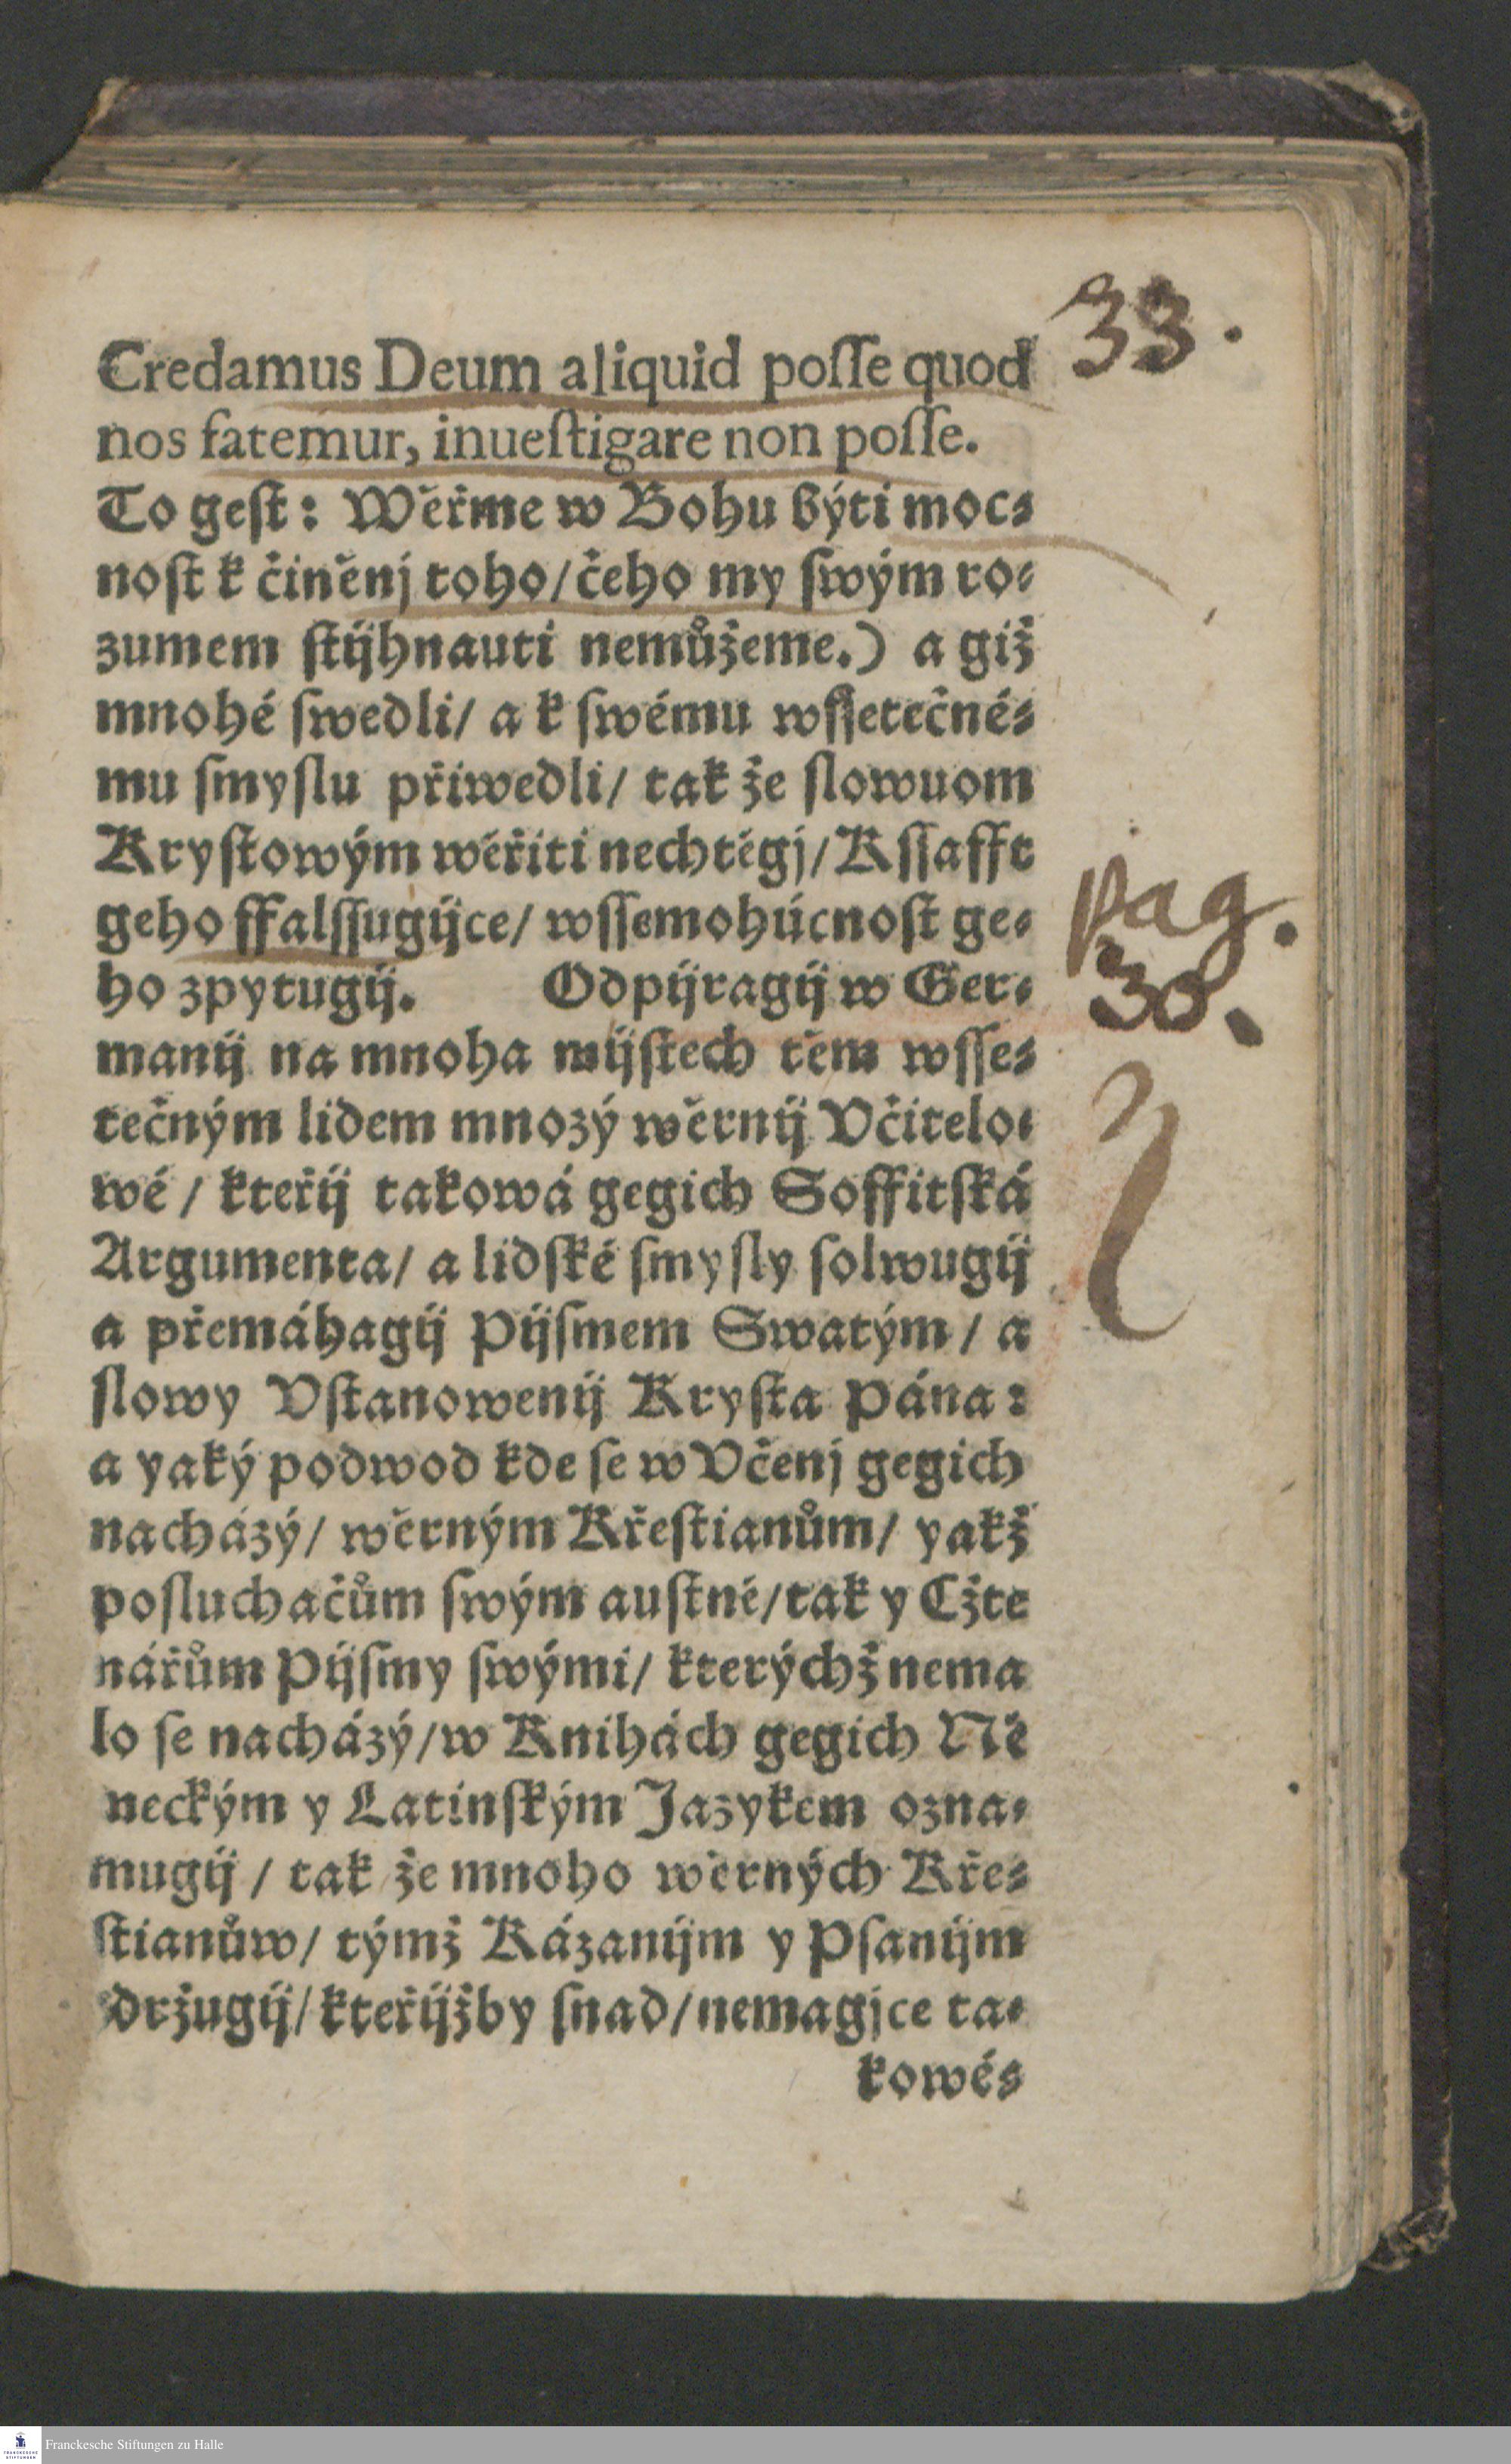 33.
Credamus Deum aliquid poſſe quod
nos fatemur, inueſtigare non poſſe.
To geſt: Wěřme w Bohu býti moc⸗
noſt k činěnj toho/ čeho my ſwým ro⸗
zumem ſtijhnauti nemůžeme.) a giž
mnohé ſwedli/ a k ſwému wſſetečné⸗
mu ſmyſlu přiwedli/ tak že ſlowuom
Kryſtowým wěřiti nechtěgj/ Kſſafft
geho ffalſſugijce/ wſſemohúcnoſt ge⸗
ho zpytugij. Odpijragij w Ger⸗
manij na mnoha mijſtech těm wſſe⸗
tečným lidem mnozý wěrnij Včitelo⸗
wé / kteřij takowá gegich Soffitſká
Argumenta/ a lidſké ſmyſly ſolwugij
a přemáhagij Pijſmem Swatým / a
ſlowy Vſtanowenij Kryſta Pána:
a yaký podwod kde ſe w Včenj gegich
nacházý/ wěrným Křeſtianům/ yakž
poſluchačům ſwým auſtně/ tak y Cžte
nářům Pijſmy ſwými/ kterýchž nema
lo ſe nacházý/ w Knihách gegich Ně
neckým y Latinſkým Jazykem ozna⸗
mugij / tak že mnoho wěrných Kře⸗
ſtianůw/ týmž Kázanijm y Pſanijm
držugij/ kteřijžby ſnad/ nemagjce ta⸗
kowé⸗
pag.
30.
Franckesche Stiftungen zu Halle